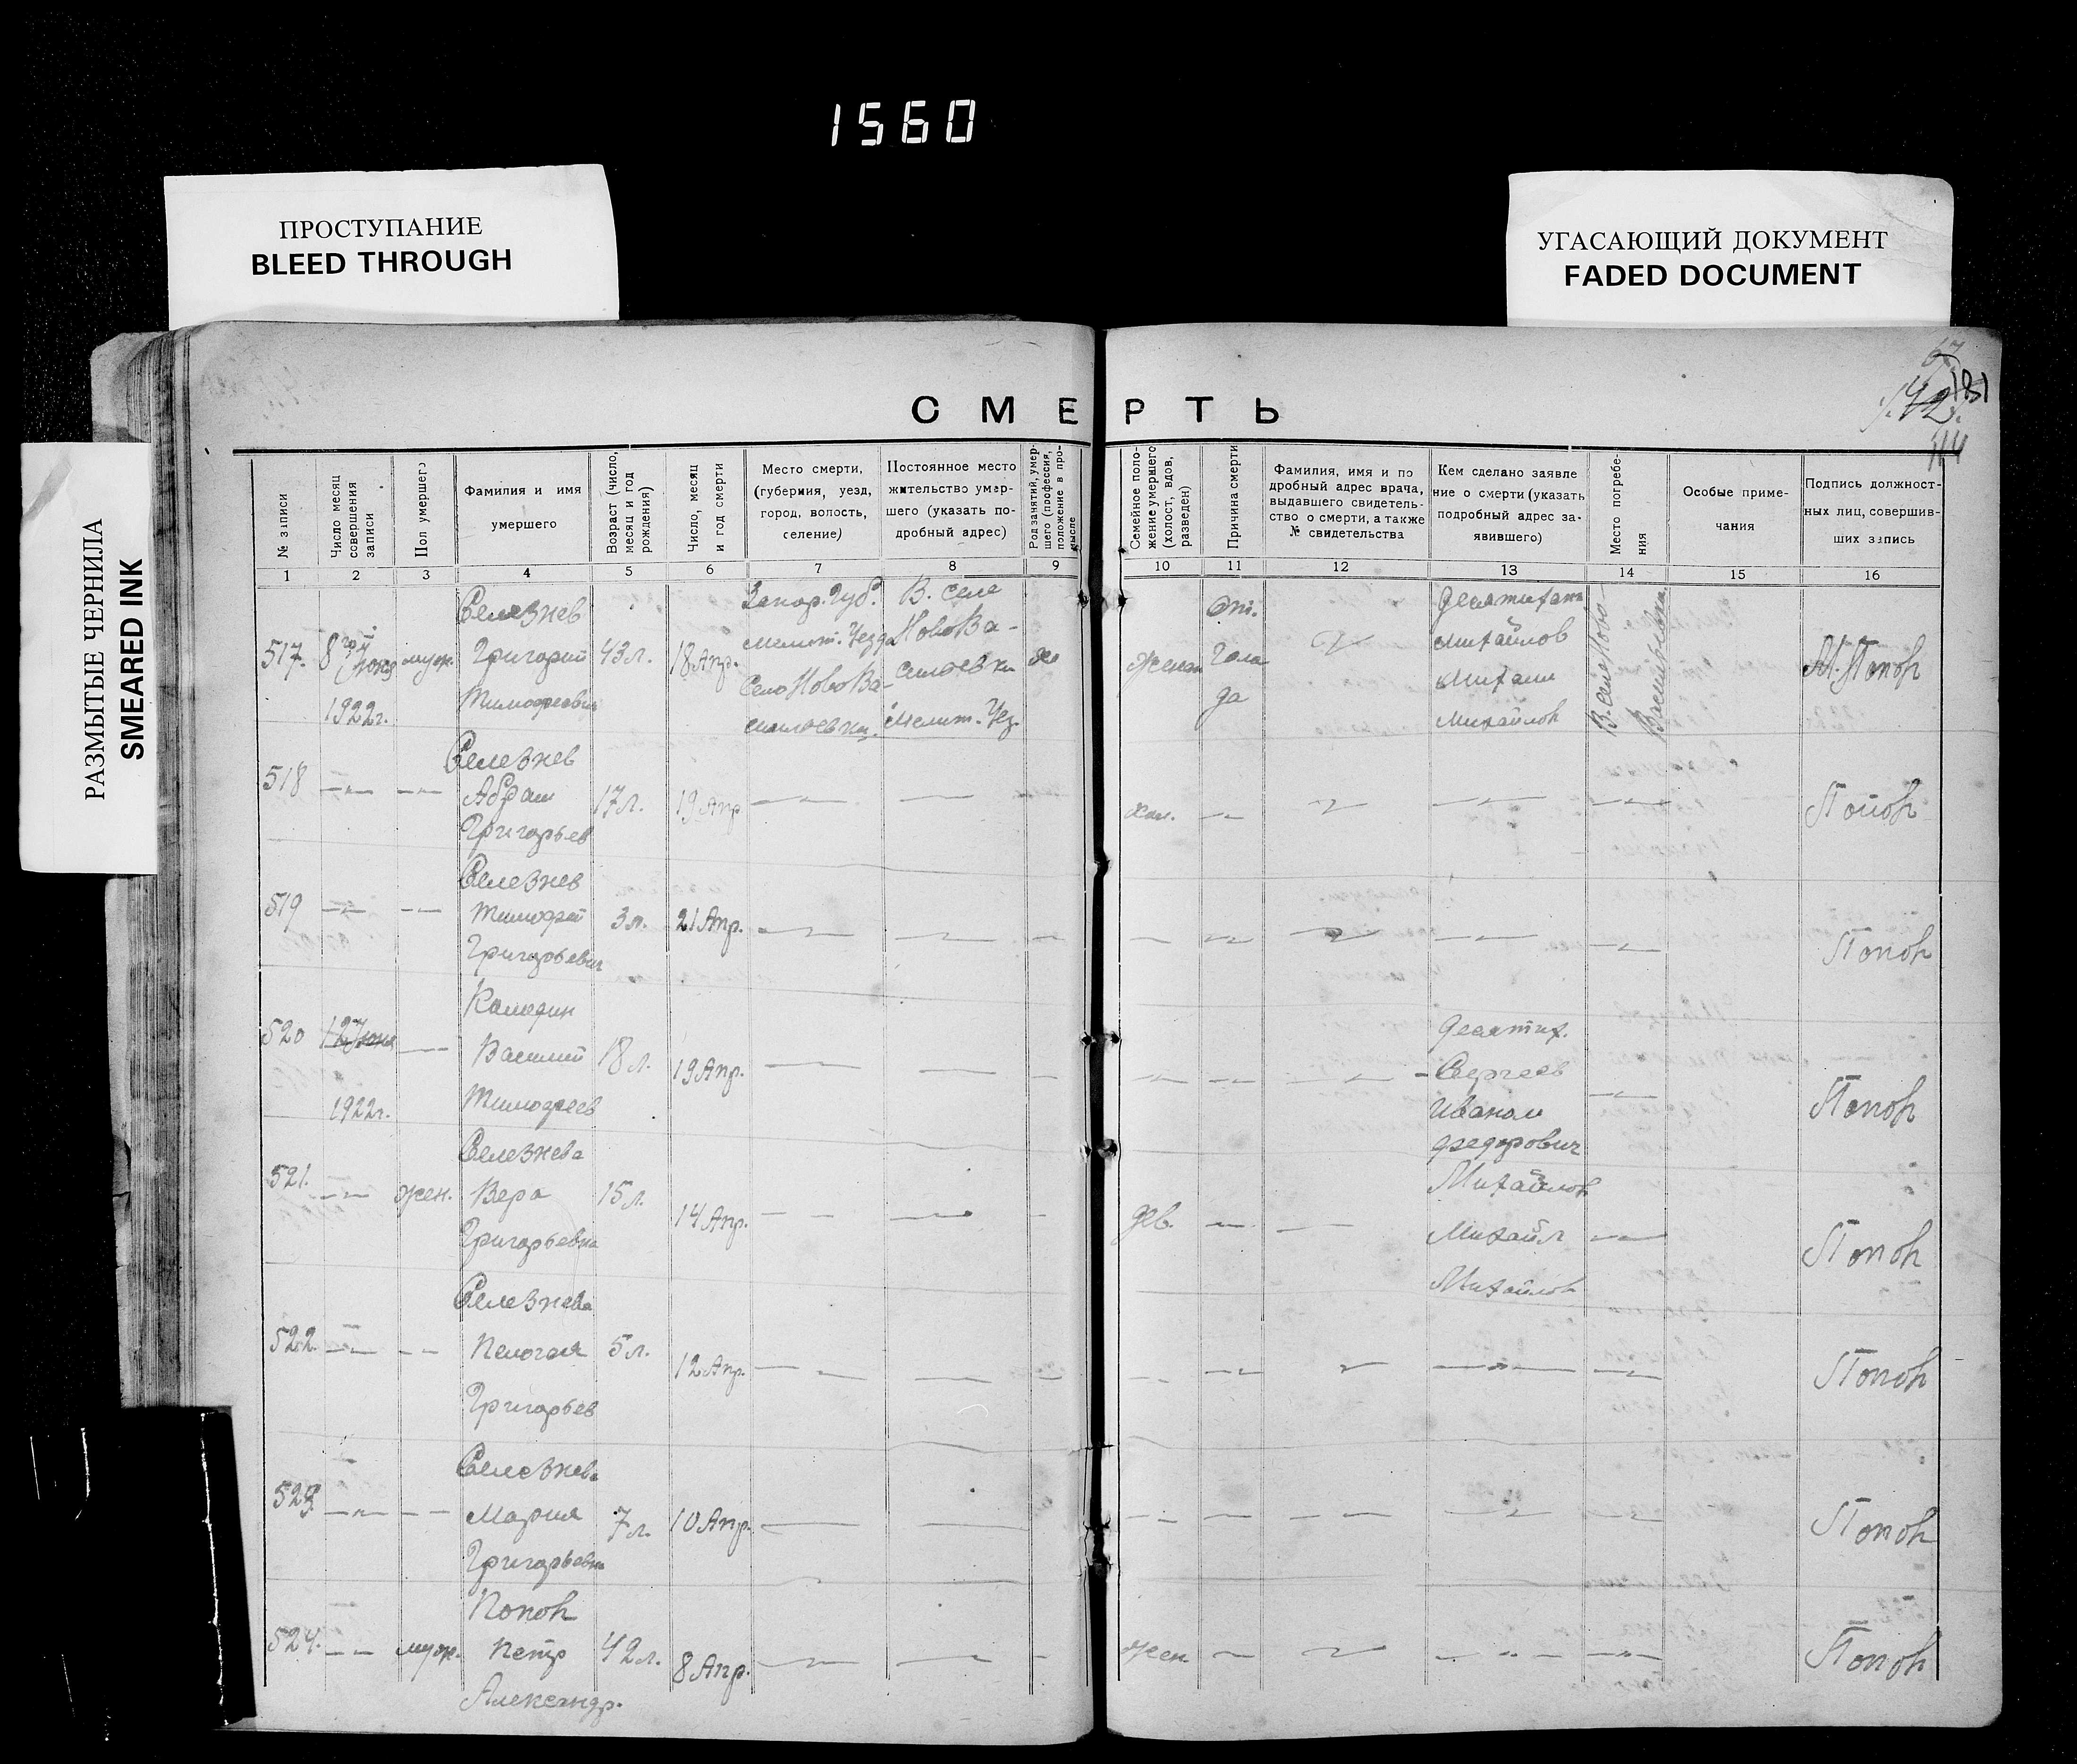 1560
ПРОСТУПАНИЕ
BLEED THROUGH
УГАСАЮЩИЙ ДОКУМЕНТ
FADED DOCUMENT
РАЗМЫТЫЕ ЧЕРНИЛА
SMEARED INK
СМЕРТЬ
№ записи
Число месяц
совершения
записи
Пол умершего
Фамилия и имя
умершего
Возраст (число,
месяц и год
рождения)
Число, месяц
и год смерти
Место смерти,
(губерния, уезд,
город, волость,
селение)
Постоянное место
жительство умер-
шего (указать по-
дробный адрес)
Род занятий, умер-
шего (профессия,
положение в про-
мысле
Семейное поло-
жение умершего
(холост, вдов,
разведен)
Причина смерти
Фамилия, имя и по
дробный адрес врача,
выдавшего свидетель-
ство о смерти, а также
№ свидетельства
Кем сделано заявле
ние о смерти (указать
подробный адрес за-
явившего)
Место погребе-
ния
Особые приме-
чания
Подпись должност-
ных лиц, совершив-
ших запись
1 2 3 4 5 6 7 8 9 10 11 12 13 14 15 16
517.
8го Июня
1922г.
муж.
Селезнев
Григорий
Тимофеевич
43 л.
18 Апр.
Запор. Губ.
Мелит. Уезда
Село Ново Ва-
сильевки.
В. Селе
Ново Ва-
сильевки
Мелит. Уез.
Женат
От.
Гола
да
Десятихат
Михайлов
Михаил
Михайлов
В. Селе Ново-
Васильевка
М. Попов
518
Селезнев
Абрам
Григорьев
17 л.
19 Апр
хол.
Попов
519
Селезнев
Тимофей
Григорьевич
3 л.
21 Апр.
Попов
520
12 Июня
1922г.
Василий
Тимофеев
18 л.
19 Апр.
Десятих.
Сергеев
Иваном
Федорович
Попов
521.
жен.
Селезнева
Вера
Григорьевна
15 л.
14 Апр.
дев.
Михайлов
Михайл
Михайлов
Попов
522.
Селезнева
Пелогея
Григорьев
5 л.
12 Апр.
Попов
523.
Селезнева
Мария
Григорьевна
7 л.
10 Апр.
Попов
524.
муж.
Попов
Петр
Александр.
42 л.
8 Апр.
жен.
Попов